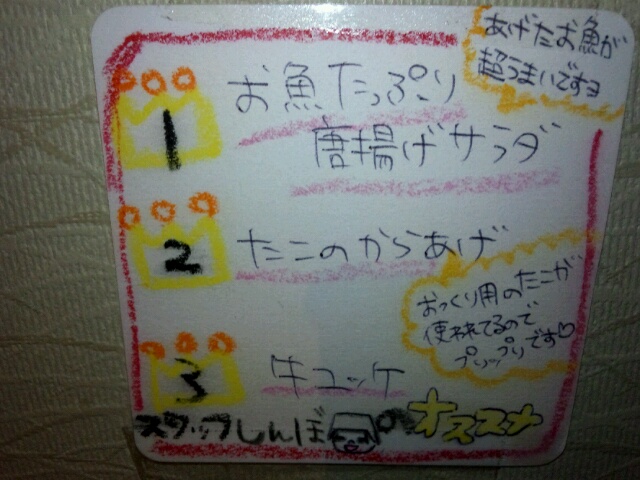 あげたお魚が
超うまいですヨ
1
お魚たっぷり
唐揚げサラダ
2
たこのからあげ
おっくり用のたこが
使われてるので
プリップリです♡
3
牛ユッケ
スタッフしんぼ の オススメ